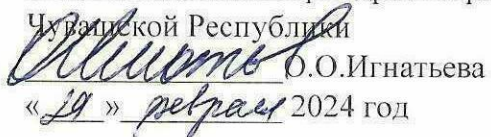 Чувашской Республики
О.О.Игнатьева
«29» февраля 2024 год